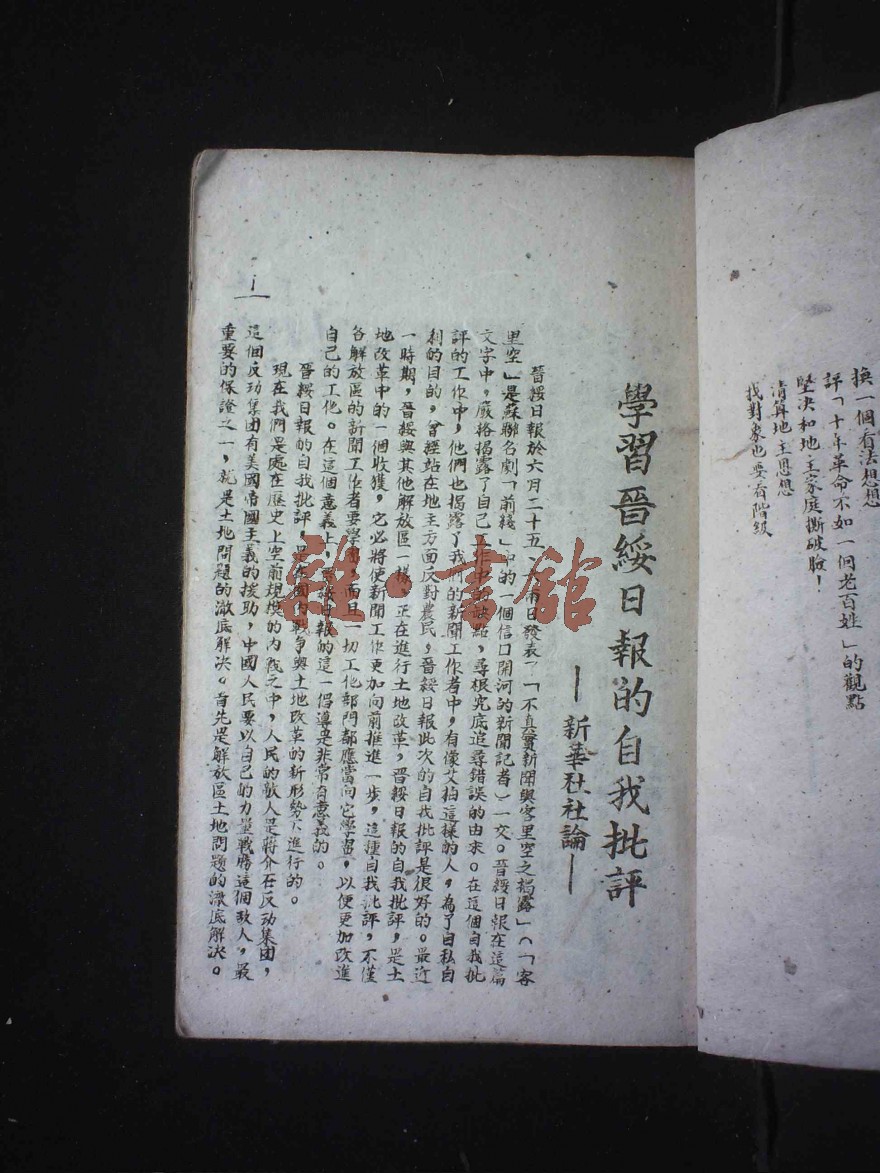 換一個看法想想
評「十年革命不如一個老百姓」的觀點
堅決和地主家庭撕破臉！
清算地主思想
找對象也要看階級
學習晉綏日報的自我批評
—新華社社論—
晉綏日報於六月二十五、六兩日發表了「不真實新聞與客里空之揭露」（「客
里空」是蘇聯名劇「前綫」中的一個信口開河的新聞記者）一文。晉綏日報在這篇
文字中，嚴格揭露了自己工作中的缺點，尋根究底追尋錯誤的由來。在這個自我批
評的工作中，他們也揭露了我們的新聞工作者中，有像艾柏這樣的人，為了自私自
利的目的，曾經站在地主方面反對農民，晉綏日報此次的自我批評是很好的。最近
一時期，晉綏與其他解放區一樣，正在進行土地改革，晉綏日報的自我批評，是土
地改革中的一個收獲，它必將使新聞工作更加向前推進一步，這種自我批評，不僅
各解放區的新聞工作者要學習，而且一切工作部門都應當向它學習，以便更加改進
自己的工作。在這個意義上，晉綏日報的這一倡導是非常有意義的。
晉綏日報的自我批評，是在國內戰爭與土地改革的新形勢下進行的。
現在我們是處在歷史上空前規模的內戰之中，人民的敵人是蔣介石反动集團，
這個反动集團有美國帝國主義的援助，中國人民要以自己的力量戰勝這個敌人，最
重要的保證之一，就是土地問題的澈底解決。首先是解放區土地問題的澈底解決。
1
雜·書館